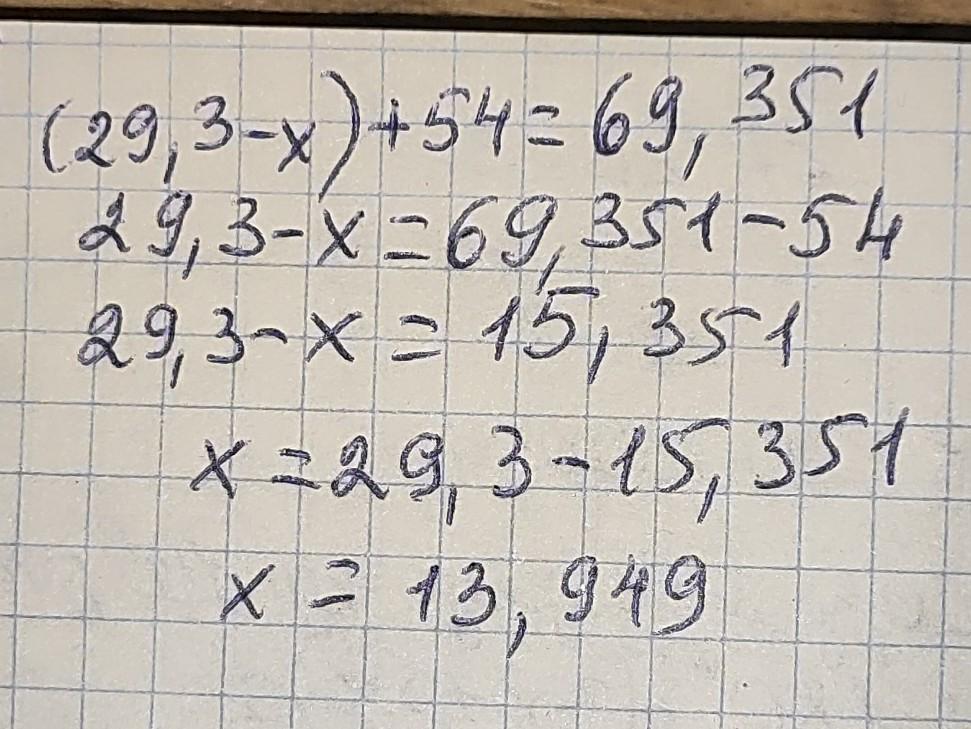 (29,3-x)+54=69,351
29,3-x=69,351-54
29,3-x=15,351
x=29,3-15,351
x=13,949